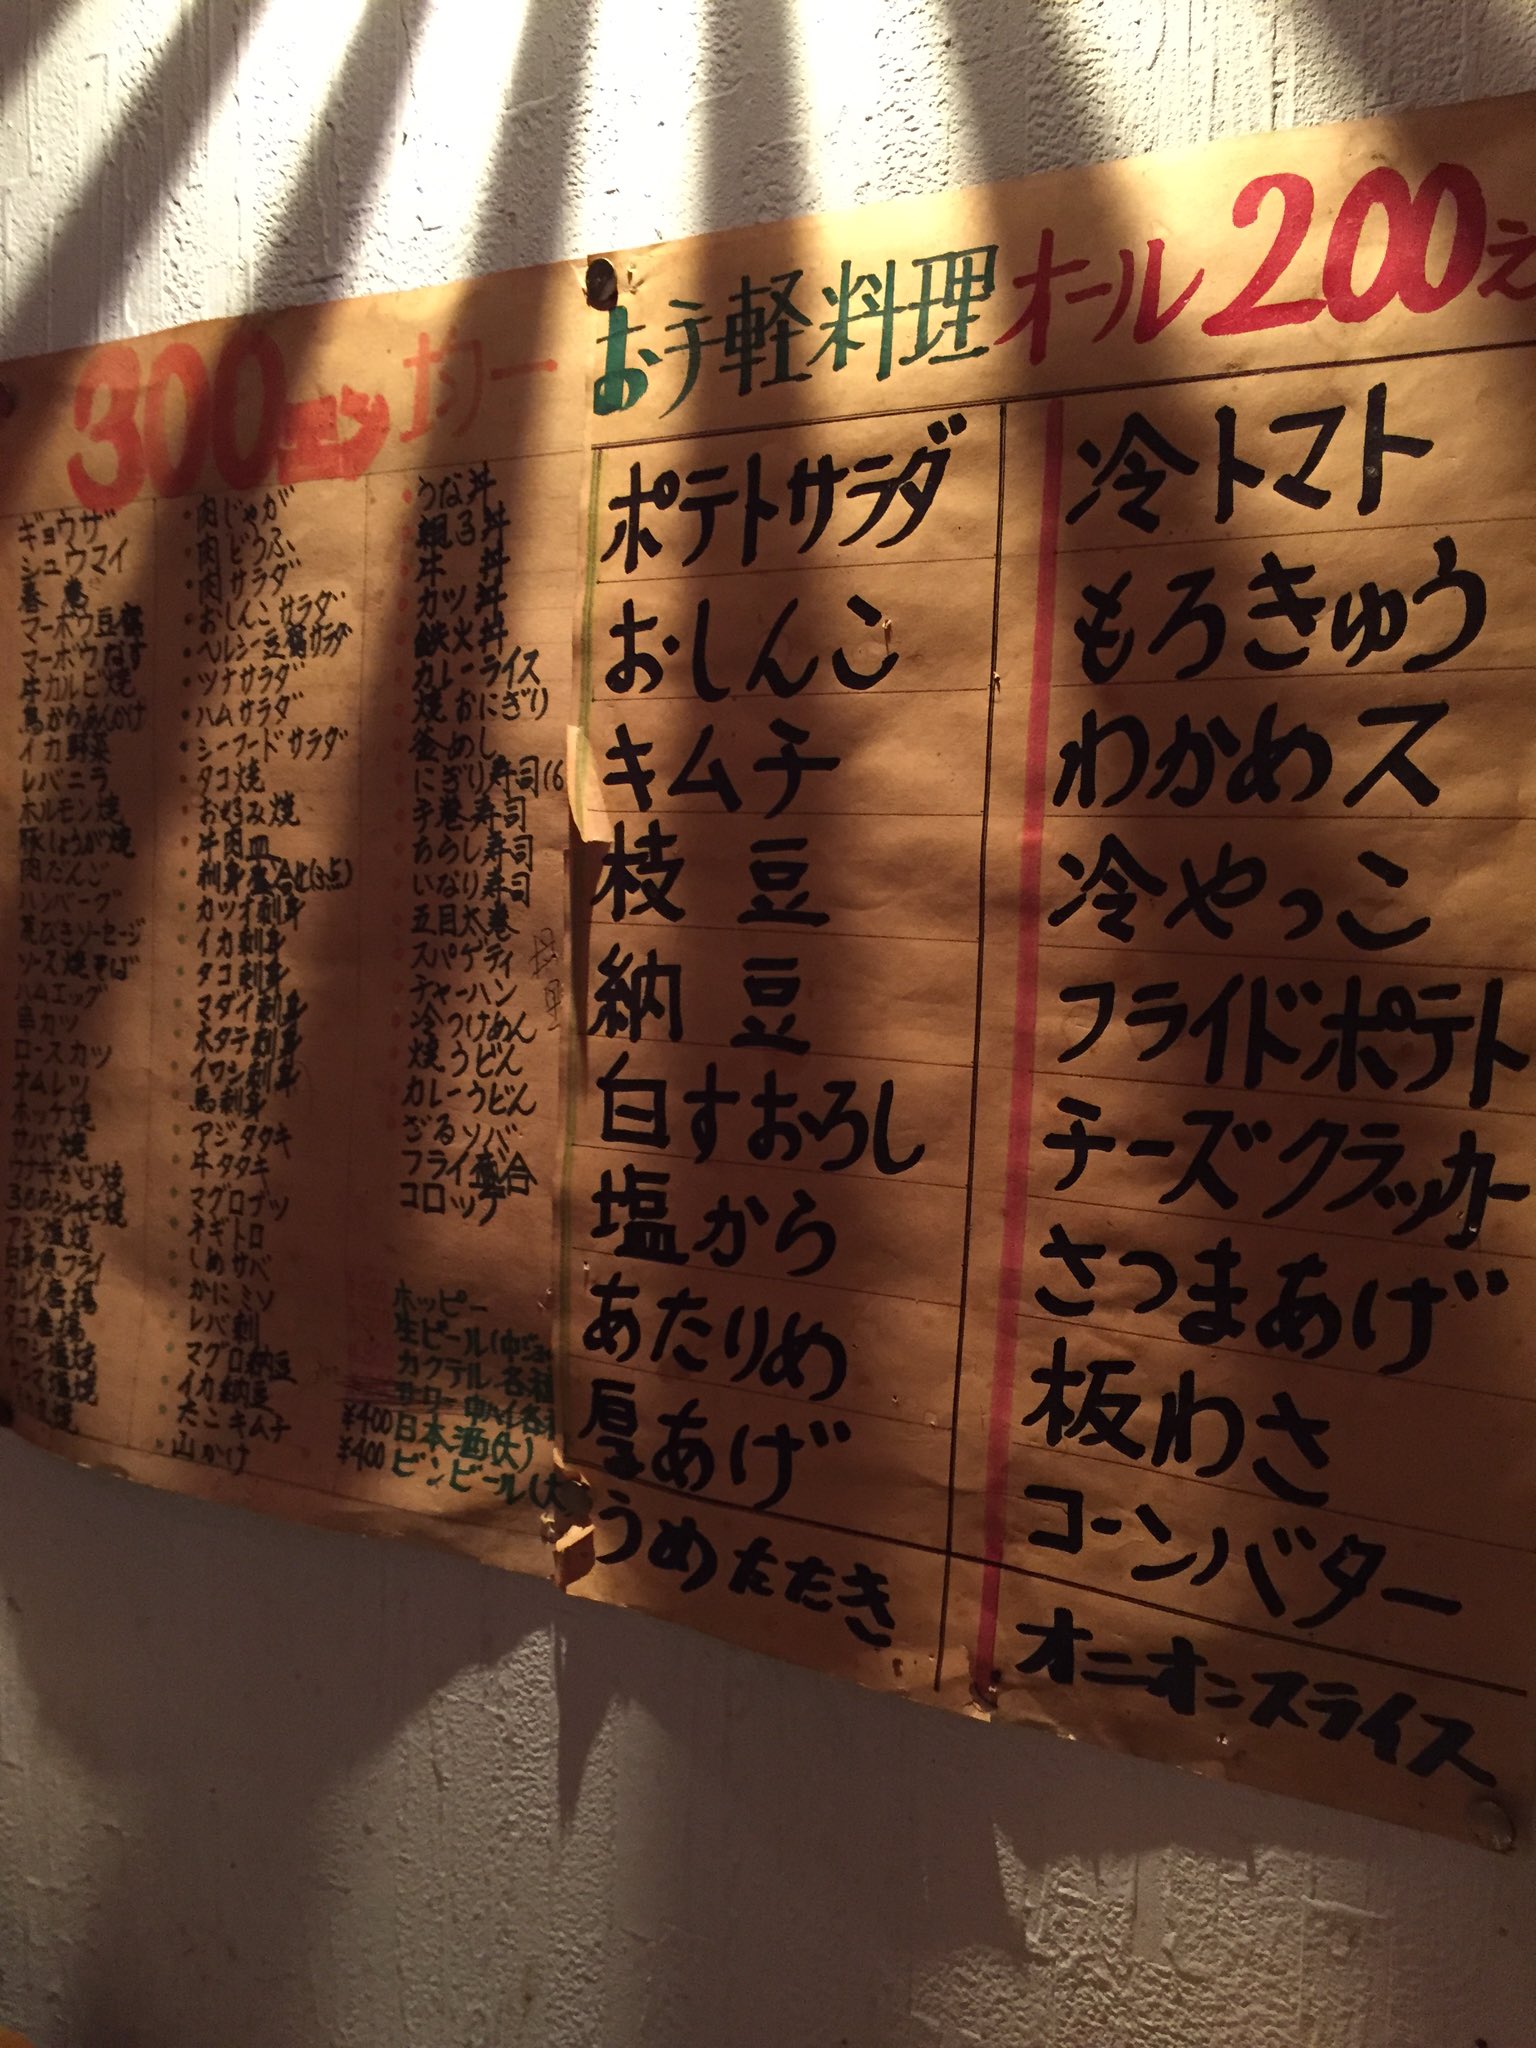 300
ギョウザ
シュウマイ
マーボウ豆腐
マーボウなす
牛カルビ焼
イカ野菜
レバニラ
ホルモン焼
豚しょうが焼
肉だんご
ハンバーグ
荒びきソーセージ
ソース焼そば
ハムエッグ
串カツ
ロースカツ
オムレツ
ホッケ焼
サバ焼
ウナギかば焼
アジ塩焼
白身魚フライ
カレイ唐揚
タコ唐揚
肉じゃが
肉どうふ
肉サラダ
おしんこサラダ
ヘルシー豆腐サラダ
ツナサラダ
ハムサラダ
シーフードサラダ
タコ焼
お好み焼
牛肉皿
刺身盛合せ(3点)
カツオ刺身
イカ刺身
タコ刺身
マダイ刺身
ホタテ刺身
イワシ刺身
馬刺身
アジタタキ
牛タタキ
マグロブツ
ネギトロ
しめサバ
かにミソ
レバ刺
マグロ納豆
イカ納豆
たこキムチ
山かけ
うな丼
親子丼
牛丼
カツ丼
鉄火丼
カレーライス
焼おにぎり
釜めし
にぎり寿司(6
手巻寿司
ちらし寿司
いなり寿司
五目太巻
スパゲティ
チャーハン
冷つけめん
焼うどん
カレーうどん
ざるソバ
フライ盛合
コロッケ
ホッピー
生ビール(中
カクテル各種
サワー酎ハイ各種
¥400日本酒(大)
¥400ビンビール(大
お手軽料理オール200え
ポテトサラダ
おしんこ
キムチ
枝豆
納豆
白すおろし
塩から
あたりめ
厚あげ
うめたたき
冷トマト
もろきゅう
わかめス
冷やっこ
フライドポテト
チーズクラッカー
さつまあげ
板わさ
コーンバター
オニオンスライス